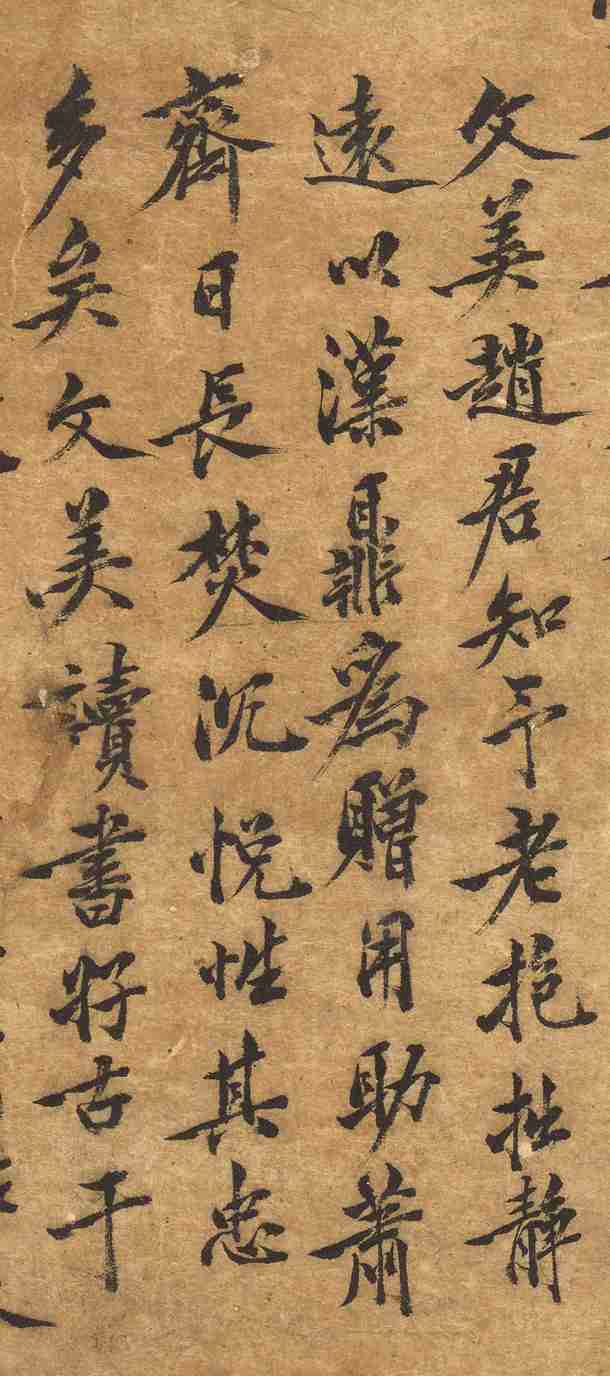 文美趙君知予老抱拙靜
遠以漢鼎為贈用助蕭
齋日長焚沉悅性其忠
多矣文美讀書好古干